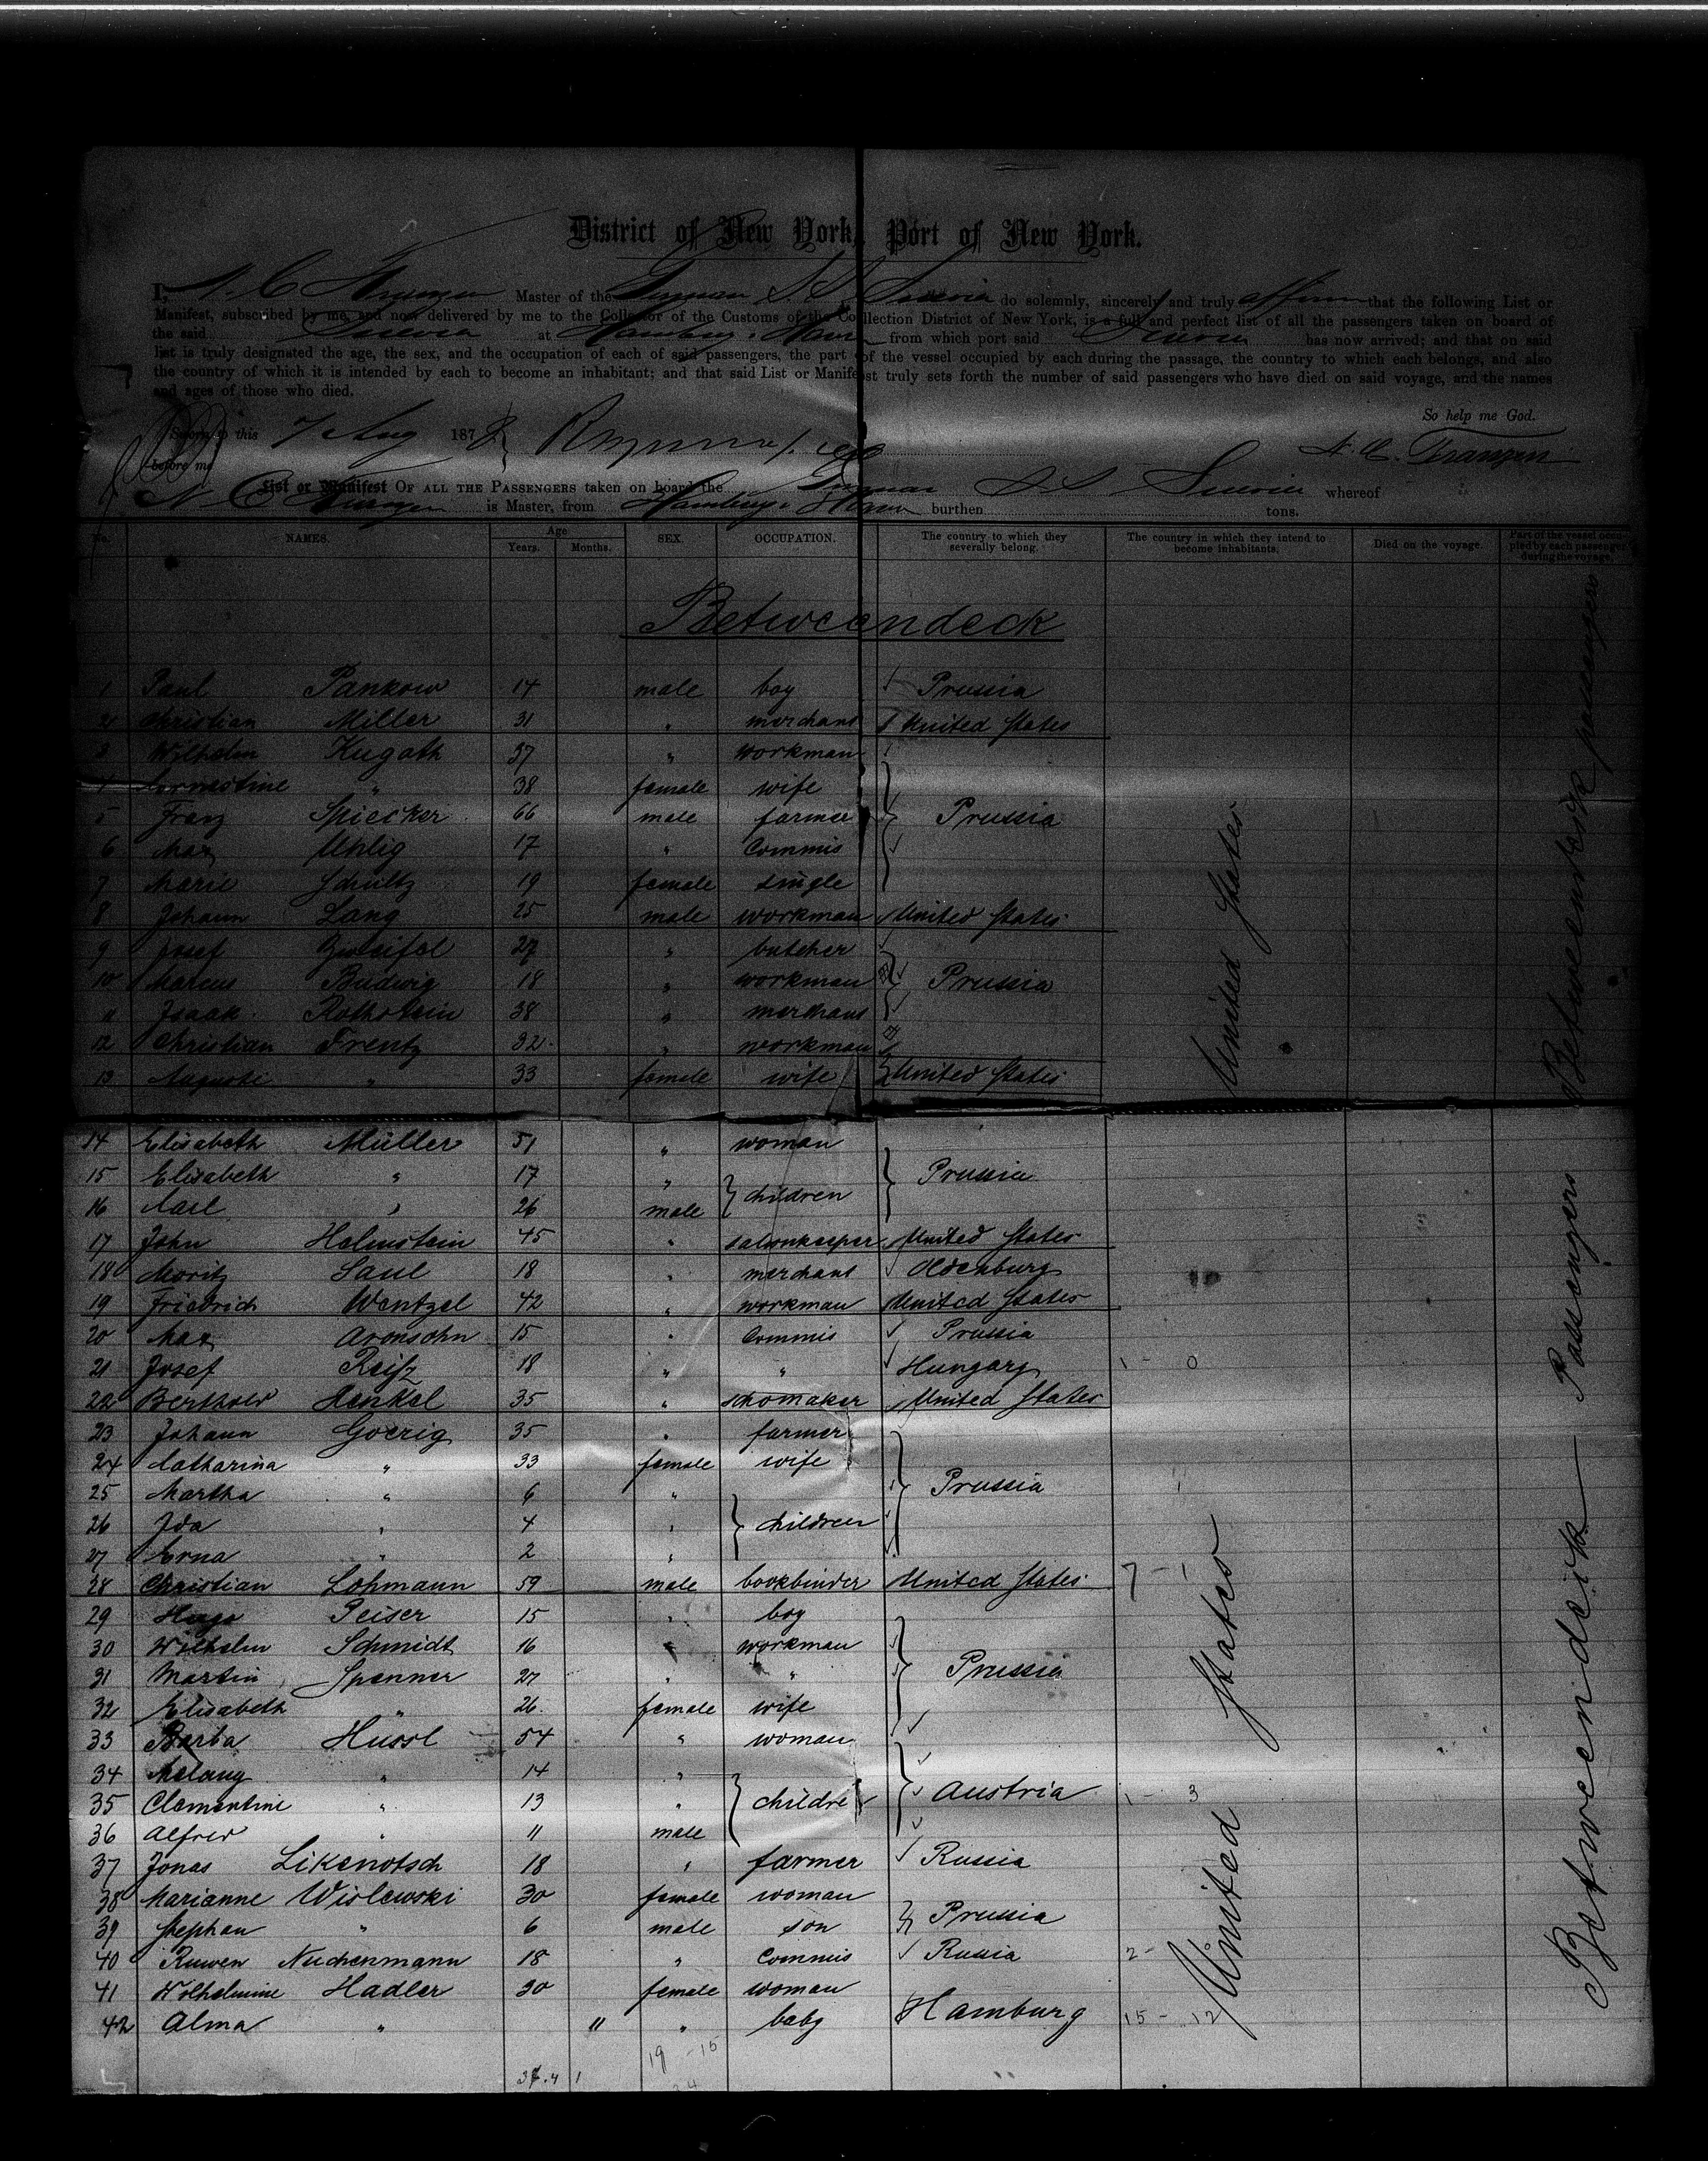 District of New York, Port of New York.
I, N. C. Franzen Master of the German S. S. Suevia do solemnly, sincerely and truly affirm that the following List or
Manifest, subscribed by me, and now delivered by me to the Collector of the Customs of the Collection District of New York, is a full and perfect list of all the passengers taken on board of
the said Suevia at Hamburg & Havre from which port said Suevia has now arrived; and that on said
list is truly designated the age, the sex, and the occupation of each of said passengers, the part of the vessel occupied by each during the passage, the country to which each belongs, and also
the country of which it is intended by each to become an inhabitant; and that said List or Manifest truly sets forth the number of said passengers who have died on said voyage, and the names
and ages of those who died.
So help me God.
Sworn to this 7 Aug 187
before me
N. C. Franzen
List or Manifest OF ALL THE PASSENGERS taken on board the German S. S. Suevia whereof
N C Franzen is Master, from Hamburg & Havre burthen tons.
No. NAMES. Age Years. Months. SEX. OCCUPATION. The country to which they severally belong. The country in which they intend to become inhabitants. Died on the voyage. Part of the vessel occupied by each passenger during the voyage.
Betweendeck
1 Paul Pankow 14 male boy Prussia
2 Christian Miller 31 " merchant United States
3 Wilhelm Kugath 37 " workman
4 Ernestine " 38 female wife
5 Franz Spiecker 66 male farmer Prussia
6 Max Uhlig 17 " Commis
7 Marie Schultz 19 female single
8 Johann Lang 25 male workman United States
9 Josef Zweifel 27 " butcher
10 Marcus Budwig 18 " workman Prussia
11 Isaak Rothstein 38 " merchant
12 Christian Frentz 32 " workman
13 Auguste " 33 female wife United States
14 Elisabeth Müller 51 " woman
15 Elisabeth " 17 " children Prussia
16 Carl " 26 male
17 John Helmstein 45 " saloonkeeper United States
18 Moritz Saul 18 " merchant Oldenburg
19 Friedrich Wentzel 42 " workman United States
20 Max Aronsohn 15 " Commis Prussia
21 Josef Reisz 18 " " Hungary 1 - 0
22 Berthold Henkel 35 " schomaker United States
23 Johann Goerig 35 " farmer
24 Catharina " 33 female wife
25 Martha " 6 " Prussia
26 Ida " 4 " children
27 Erna " 2 "
28 Christian Lohmann 59 male bookbinder United States 7 - 1
29 Hugo Peiser 15 " boy
30 Wilhelm Schmidt 16 " workman
31 Martin Spenner 27 " " Prussia
32 Elisabeth " 26 female wife
33 Barba Hussl 54 " woman
34 Melany " 14 "
35 Clementine " 13 " children Austria 1 - 3
36 Alfred " 11 male
37 Jonas Likenotsch 18 " farmer Russia
38 Marianne Wislewski 30 female woman
39 Stephan " 6 male son Prussia
40 Ruwen Nuchenmann 18 " Commis Russia 2 -
41 Wilhelmine Hadler 30 female woman
42 Alma " 11 " baby Hamburg 15 - 12
19 - 15
United States
United States
Betweendeck passengers
Betweendeck Passengers